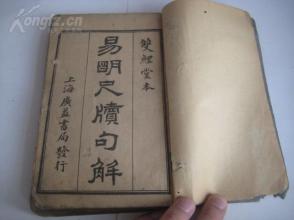 雙鯉堂本
易明尺牘句解
上海廣益書局發行
kongfz.com